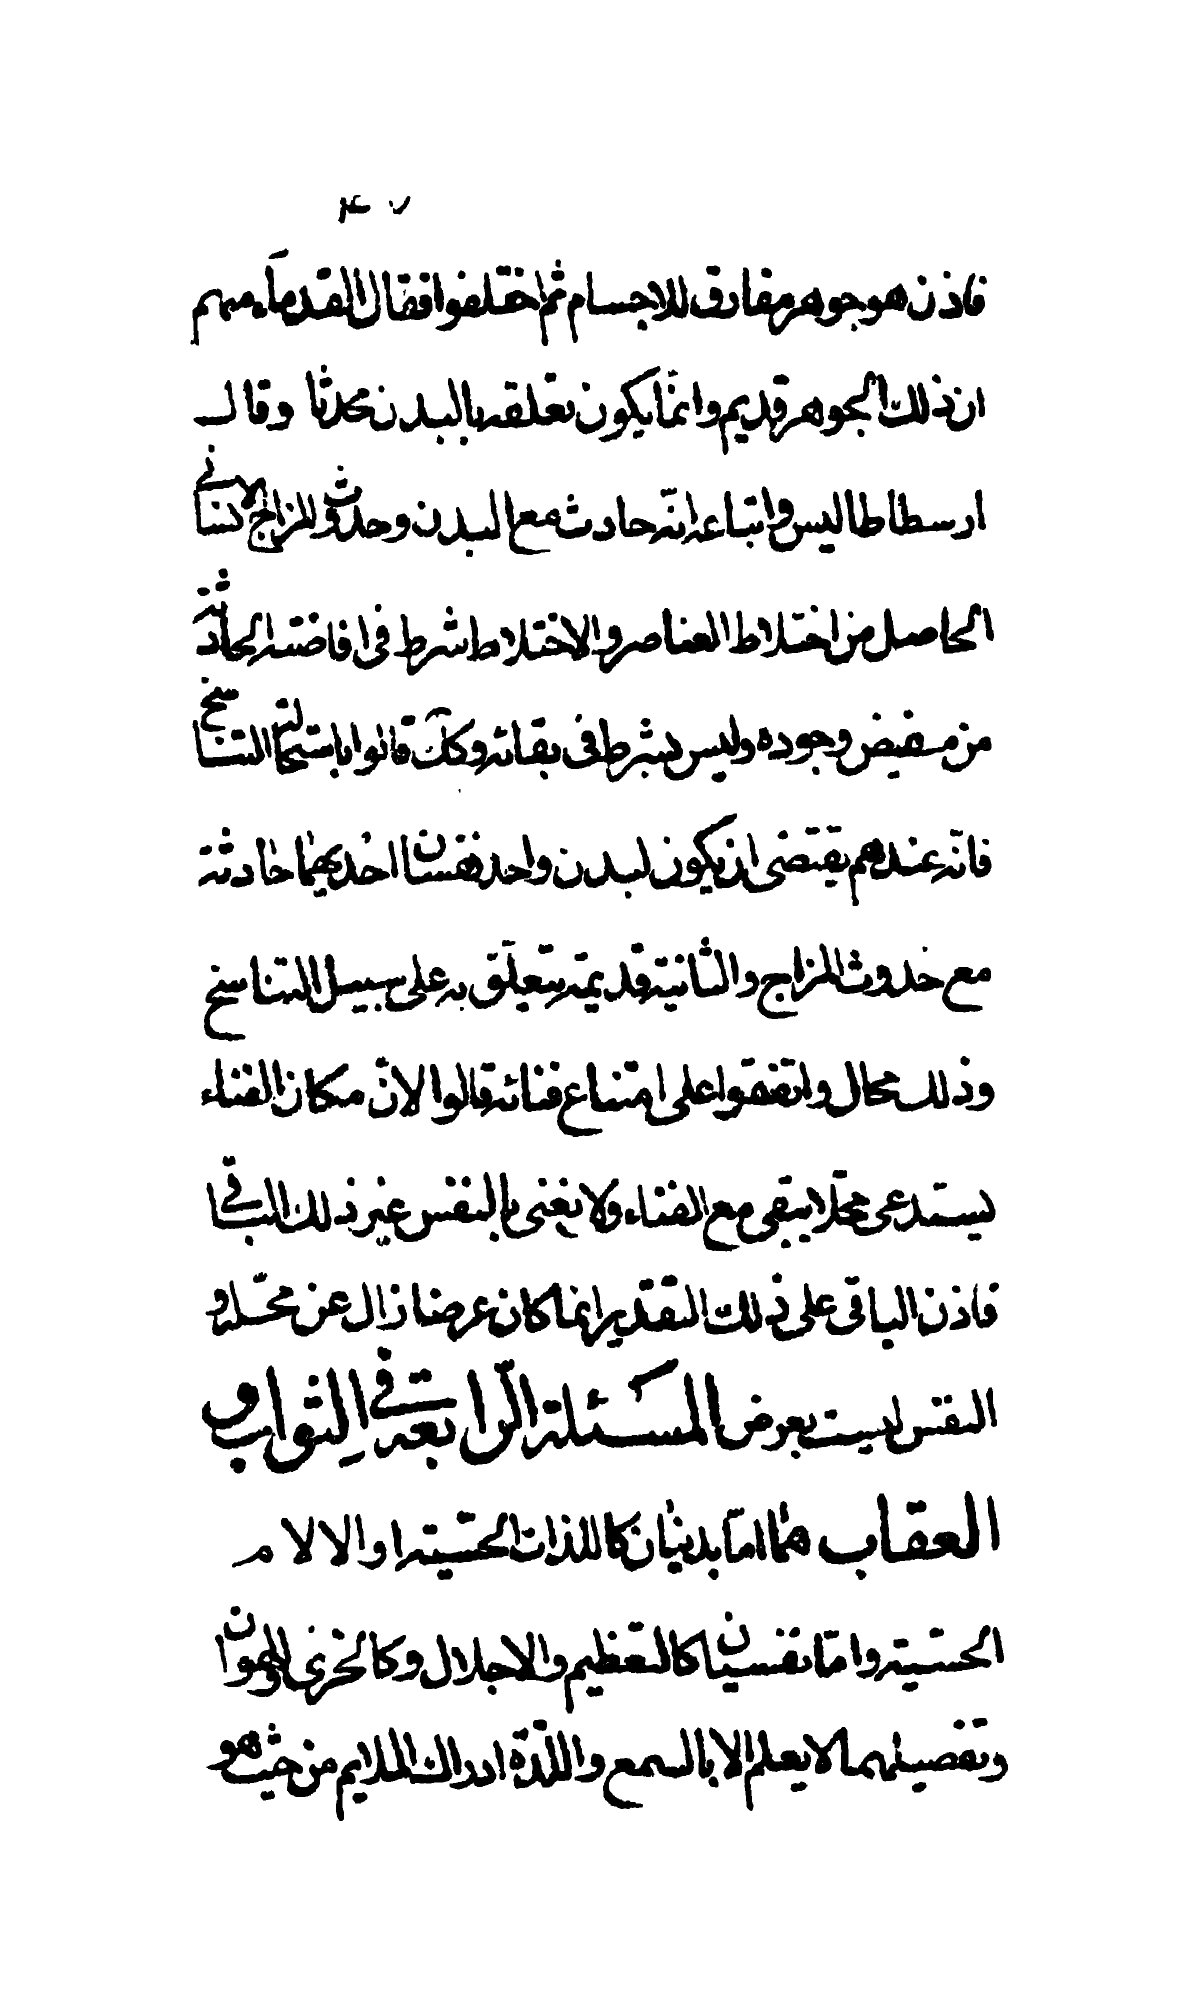 ٤٧
فاذن هو جوهر مفارق للاجسام ثم اختلفوا فقال القدماء منهم
ان ذلك الجوهر قديم وانما يكون تعلقه بالبدن محدثا وقال
ارسطاطاليس واتباعه انّه حادث مع البدن وحدوث المزاج الانسانى
الحاصل من اختلاط العناصر والاختلاط شرط فى افاضته الحادثة
من مفيض وجوده وليس بشرط فى بقائه وكك قالوا باستحالة التناسخ
فانّه عندهم يقتضى ان يكون لبدن واحد نفسان احديهما حادثة
مع حدوث المزاج والثانية قديمة يتعلّق به على سبيل التناسخ
وذلك محال واتفقوا على امتناع فنائه قالوا لانّ مكان الفناء
يستدعى محّلا يبقى مع الفناء ولا يعنى بالنفس غير ذلك الباقى
فاذن الباقى على ذلك التقدير انما كان عرضا زال عن محّله و
النفس ليست بعرض المسئلة الرّابعة فى الثواب و
العقاب هما امّا بدنيان كاللذات الحسّية او الالام
الحسّية وامّا نفسيان كالتعظيم والاجلال وكالخزى والهوان
وتفصيلهما لا يعلم الا بالسمع واللّذة ادراك الملايم من حيث هو